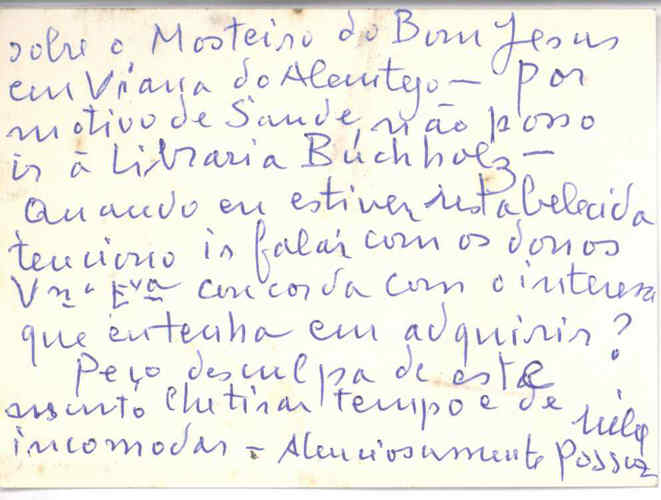 sobre o Mosteiro do Bom Jesus
em Viana do Alentejo — por
motivo de Saude, não posso
ir à Libraria Buchholz —
Quando eu estiver restabelecida
tenciono ir falar com os donos
V Exª concorda com o interesse
que eu tenha em adquirir?
Peço desculpa de este
assunto lhe tirar tempo e de
incomodar — Atenciosamente